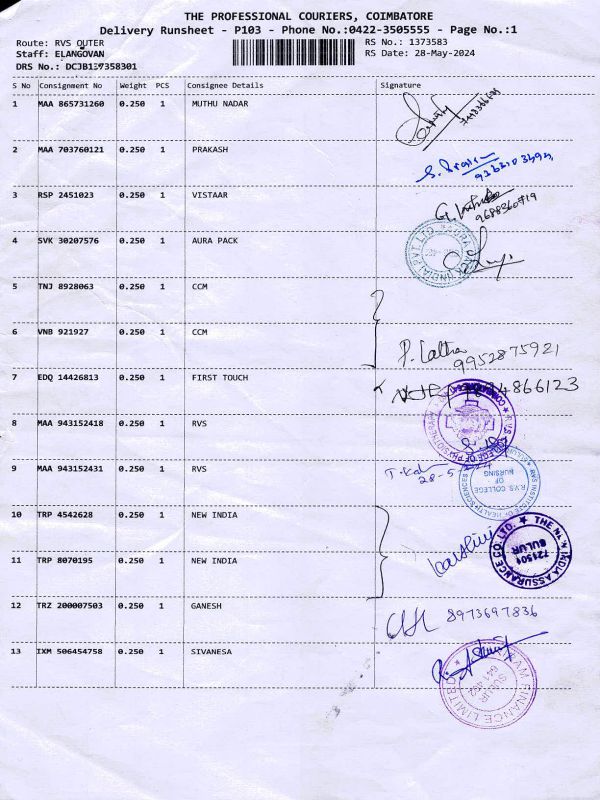 THE PROFESSIONAL COURIERS, COIMBATORE
Delivery Runsheet - P103 - Phone No.:0422-3505555 - Page No.:1
Route: RVS OUTER RS No.: 1373583
Staff: ELANGOVAN RS Date: 28-May-2024
DRS No.: DCJB137358301
S No Consignment No Weight PCS Consignee Details Signature
1 MAA 865731260 0.250 1 MUTHU NADAR
2 MAA 703760121 0.250 1 PRAKASH
3 RSP 2451023 0.250 1 VISTAAR
9688360719
4 SVK 30207576 0.250 1 AURA PACK
AURA PACK (INDIA) PVT LTD
5 TNJ 8928063 0.250 1 CCM
6 VNB 921927 0.250 1 CCM
P. Latha
9952875921
7 EDQ 14426813 0.250 1 FIRST TOUCH
866123
8 MAA 943152418 0.250 1 RVS
9 MAA 943152431 0.250 1 RVS
28-5-
R.V.S. COLLEGE OF NURSING
RVS INSTITUTE OF HEALTH SCIENCES
10 TRP 4542628 0.250 1 NEW INDIA
THE NEW INDIA ASSURANCE CO. LTD.
721501
SULUR
11 TRP 8070195 0.250 1 NEW INDIA
12 TRZ 200007503 0.250 1 GANESH
8973697836
13 IXM 506454758 0.250 1 SIVANESA
FINANCE LIMITED
SULUR